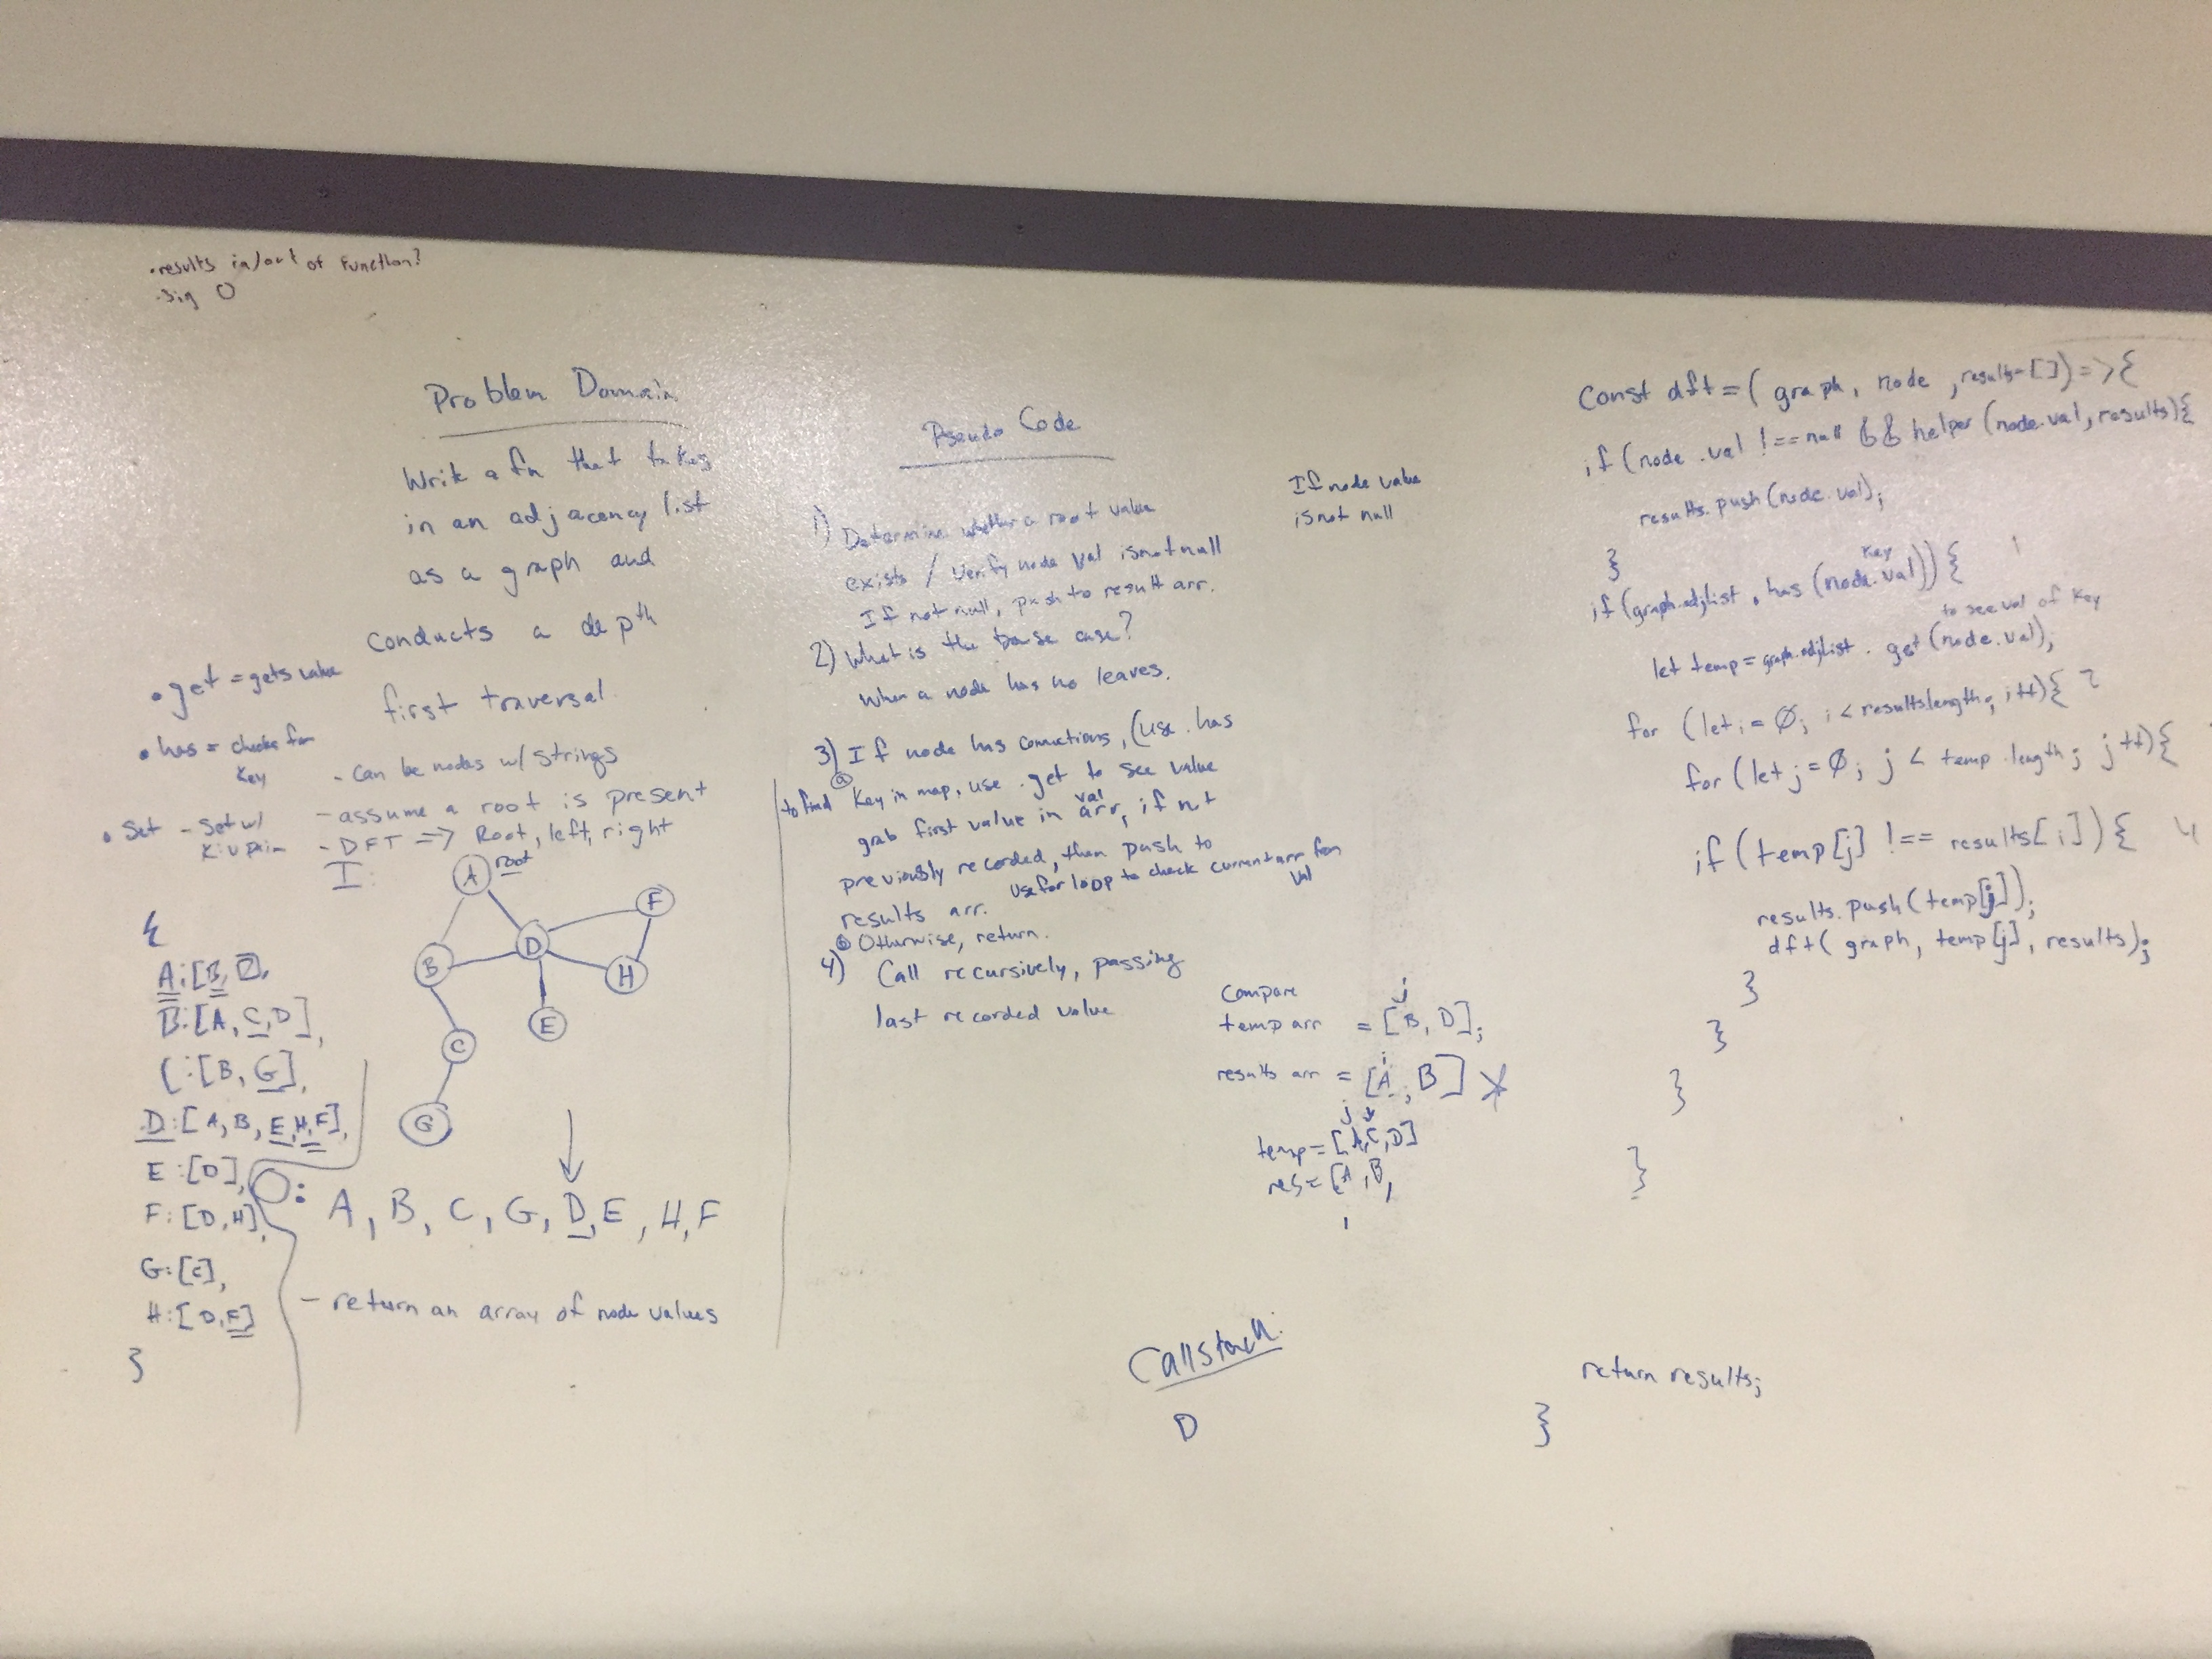 .results in/out of function?
.Big O
Problem Domain
Write a fn that takes
in an adjacency list
as a graph and
conducts a depth
first traversal.
• get = gets value
• has = checks for
key
• Set - Set w/
K:V pair
- can be nodes w/ strings
- assume a root is present
- DFT => Root, left, right
I:
A root
B
D
F
H
E
C
G
{
A:[B, D],
B:[A, C, D],
C:[B, G],
D:[A, B, E, H, F],
E:[D],
F:[D, H],
G:[C],
H:[D, F]
}
O: A, B, C, G, D, E, H, F
- return an array of node values
Pseudo Code
1) Determine whether a root value
exists / verify node val is not null
If not null, push to result arr.
2) What is the base case?
When a node has no leaves.
3) If node has connections, (use .has
a
to find key in map, use .get to see value
grab first value in val arr, if not
previously recorded, then push to
results arr. use for loop to check current arr for val
b Otherwise, return.
4) Call recursively, passing
last recorded value
If node value
is not null
j
Compare
temp arr = [B, D];
i
results arr = [A, B] *
j
temp = [A, C, D]
res = [A, B,
Callstack:
D
Const dft = ( graph, node, results=[]) => {
if (node.val !== null && helper (node.val, results){
results.push(node.val);
}
if (graph.adjlist.has (node.val)) { 1
key
to see val of key
let temp = graph.adjlist.get (node.val);
for (let i = Ø; i < results.length; i++){ 2
for (let j = Ø; j < temp.length; j++){
if (temp[j] !== results[i]) { 4
results.push(temp[j]);
dft( graph, temp[j], results);
}
}
}
}
return results;
}